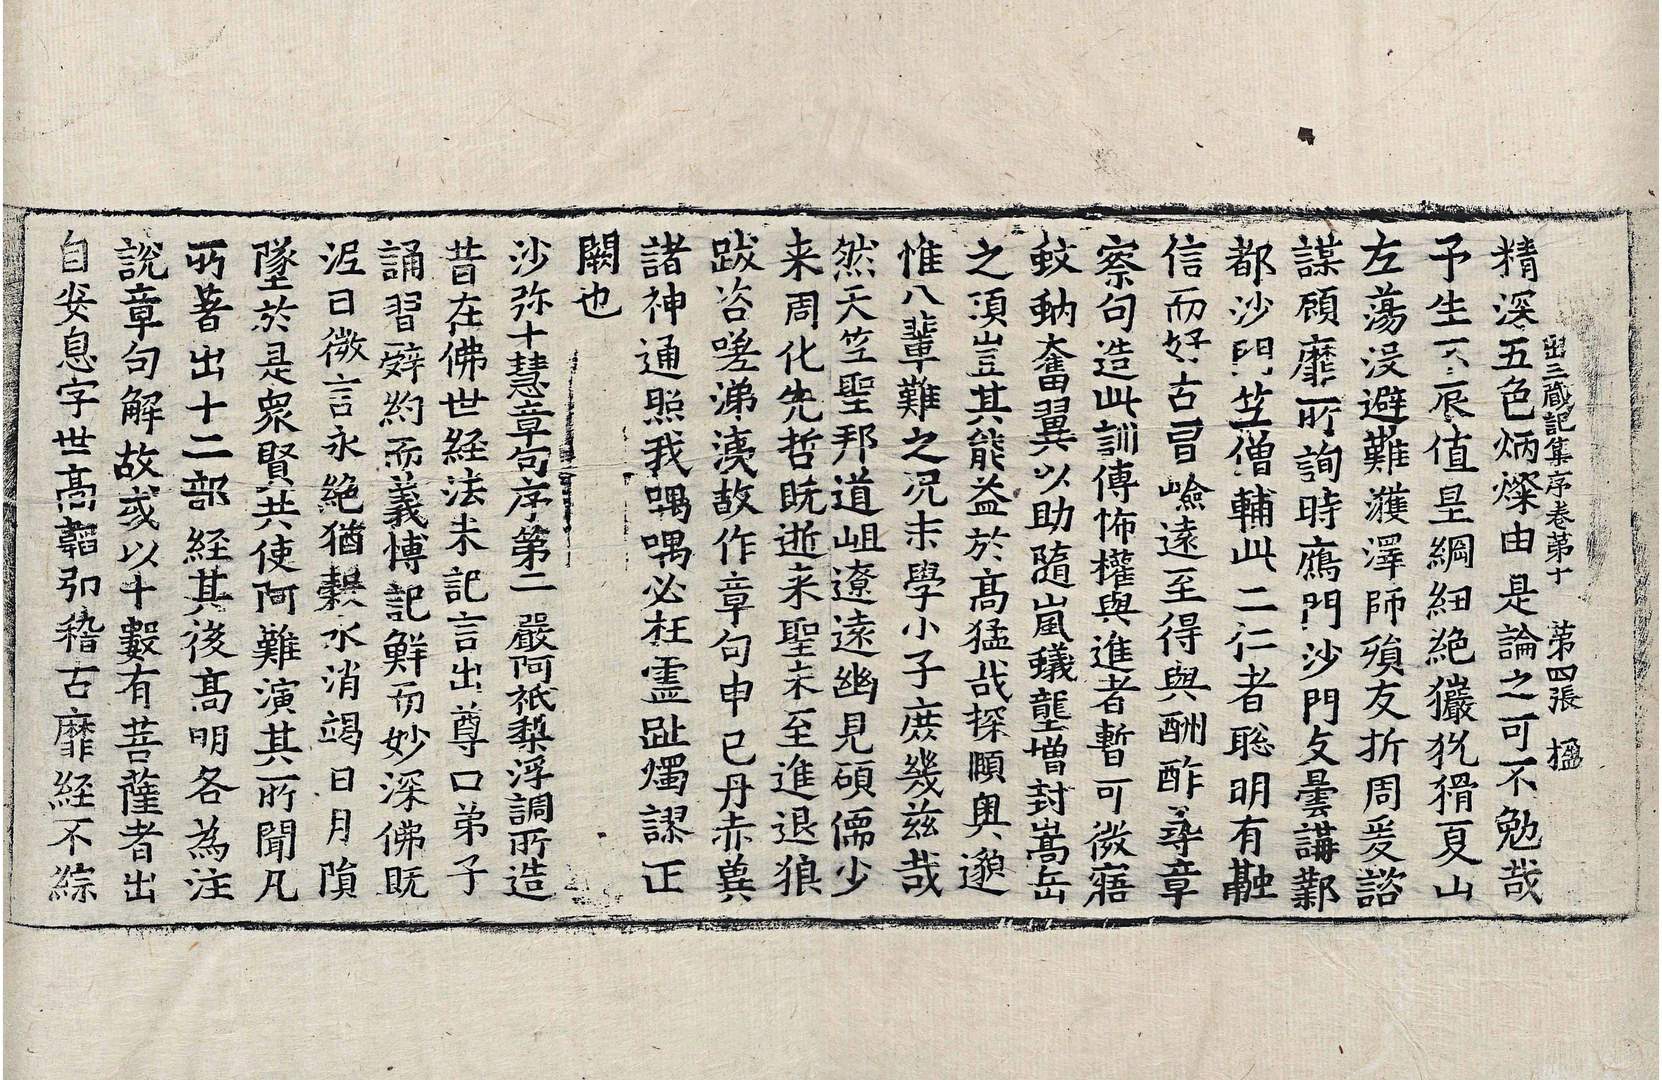 出三蔵記集序卷第十 第四張 楹
精深五色炳燦由是論之可不勉哉
予生不辰值皇綱紐絶玁狁猾夏山
左蕩沒避難濩澤師殞友折周爰諮
謀顧靡所詢時鴈門沙門支曇講鄴
都沙門竺僧輔此二仁者聡明有融
信而好古冒嶮遠至得與酬酢尋章
察句造此訓傳怖權與進者暫可微寤
蚊蚋奮翼以助隨嵐蟻壟増封嵩岳
之頂豈其能益於髙猛哉探賾奥邈
惟八輩難之况末學小子庶幾兹哉
然天竺聖邦道岨遼遠幽見碩儒少
来周化先哲既逝来聖未至進退狼
跋咨嗟涕洟故作章句申己丹赤兾
諸神通照我喁喁必枉霊趾燭謬正
闕也
沙弥十慧章句序第二 嚴阿祇梨浮調所造
昔在佛世経法未記言出尊口弟子
誦習辤約而義博記鮮而妙深佛既
泥曰微言永絶猶穀水消竭日月隕
墜於是衆賢共使阿難演其所聞凡
所著出十二部経其後髙明各為注
說章句解故或以十數有菩薩者出
自安息字世髙韜弘稽古靡経不綜